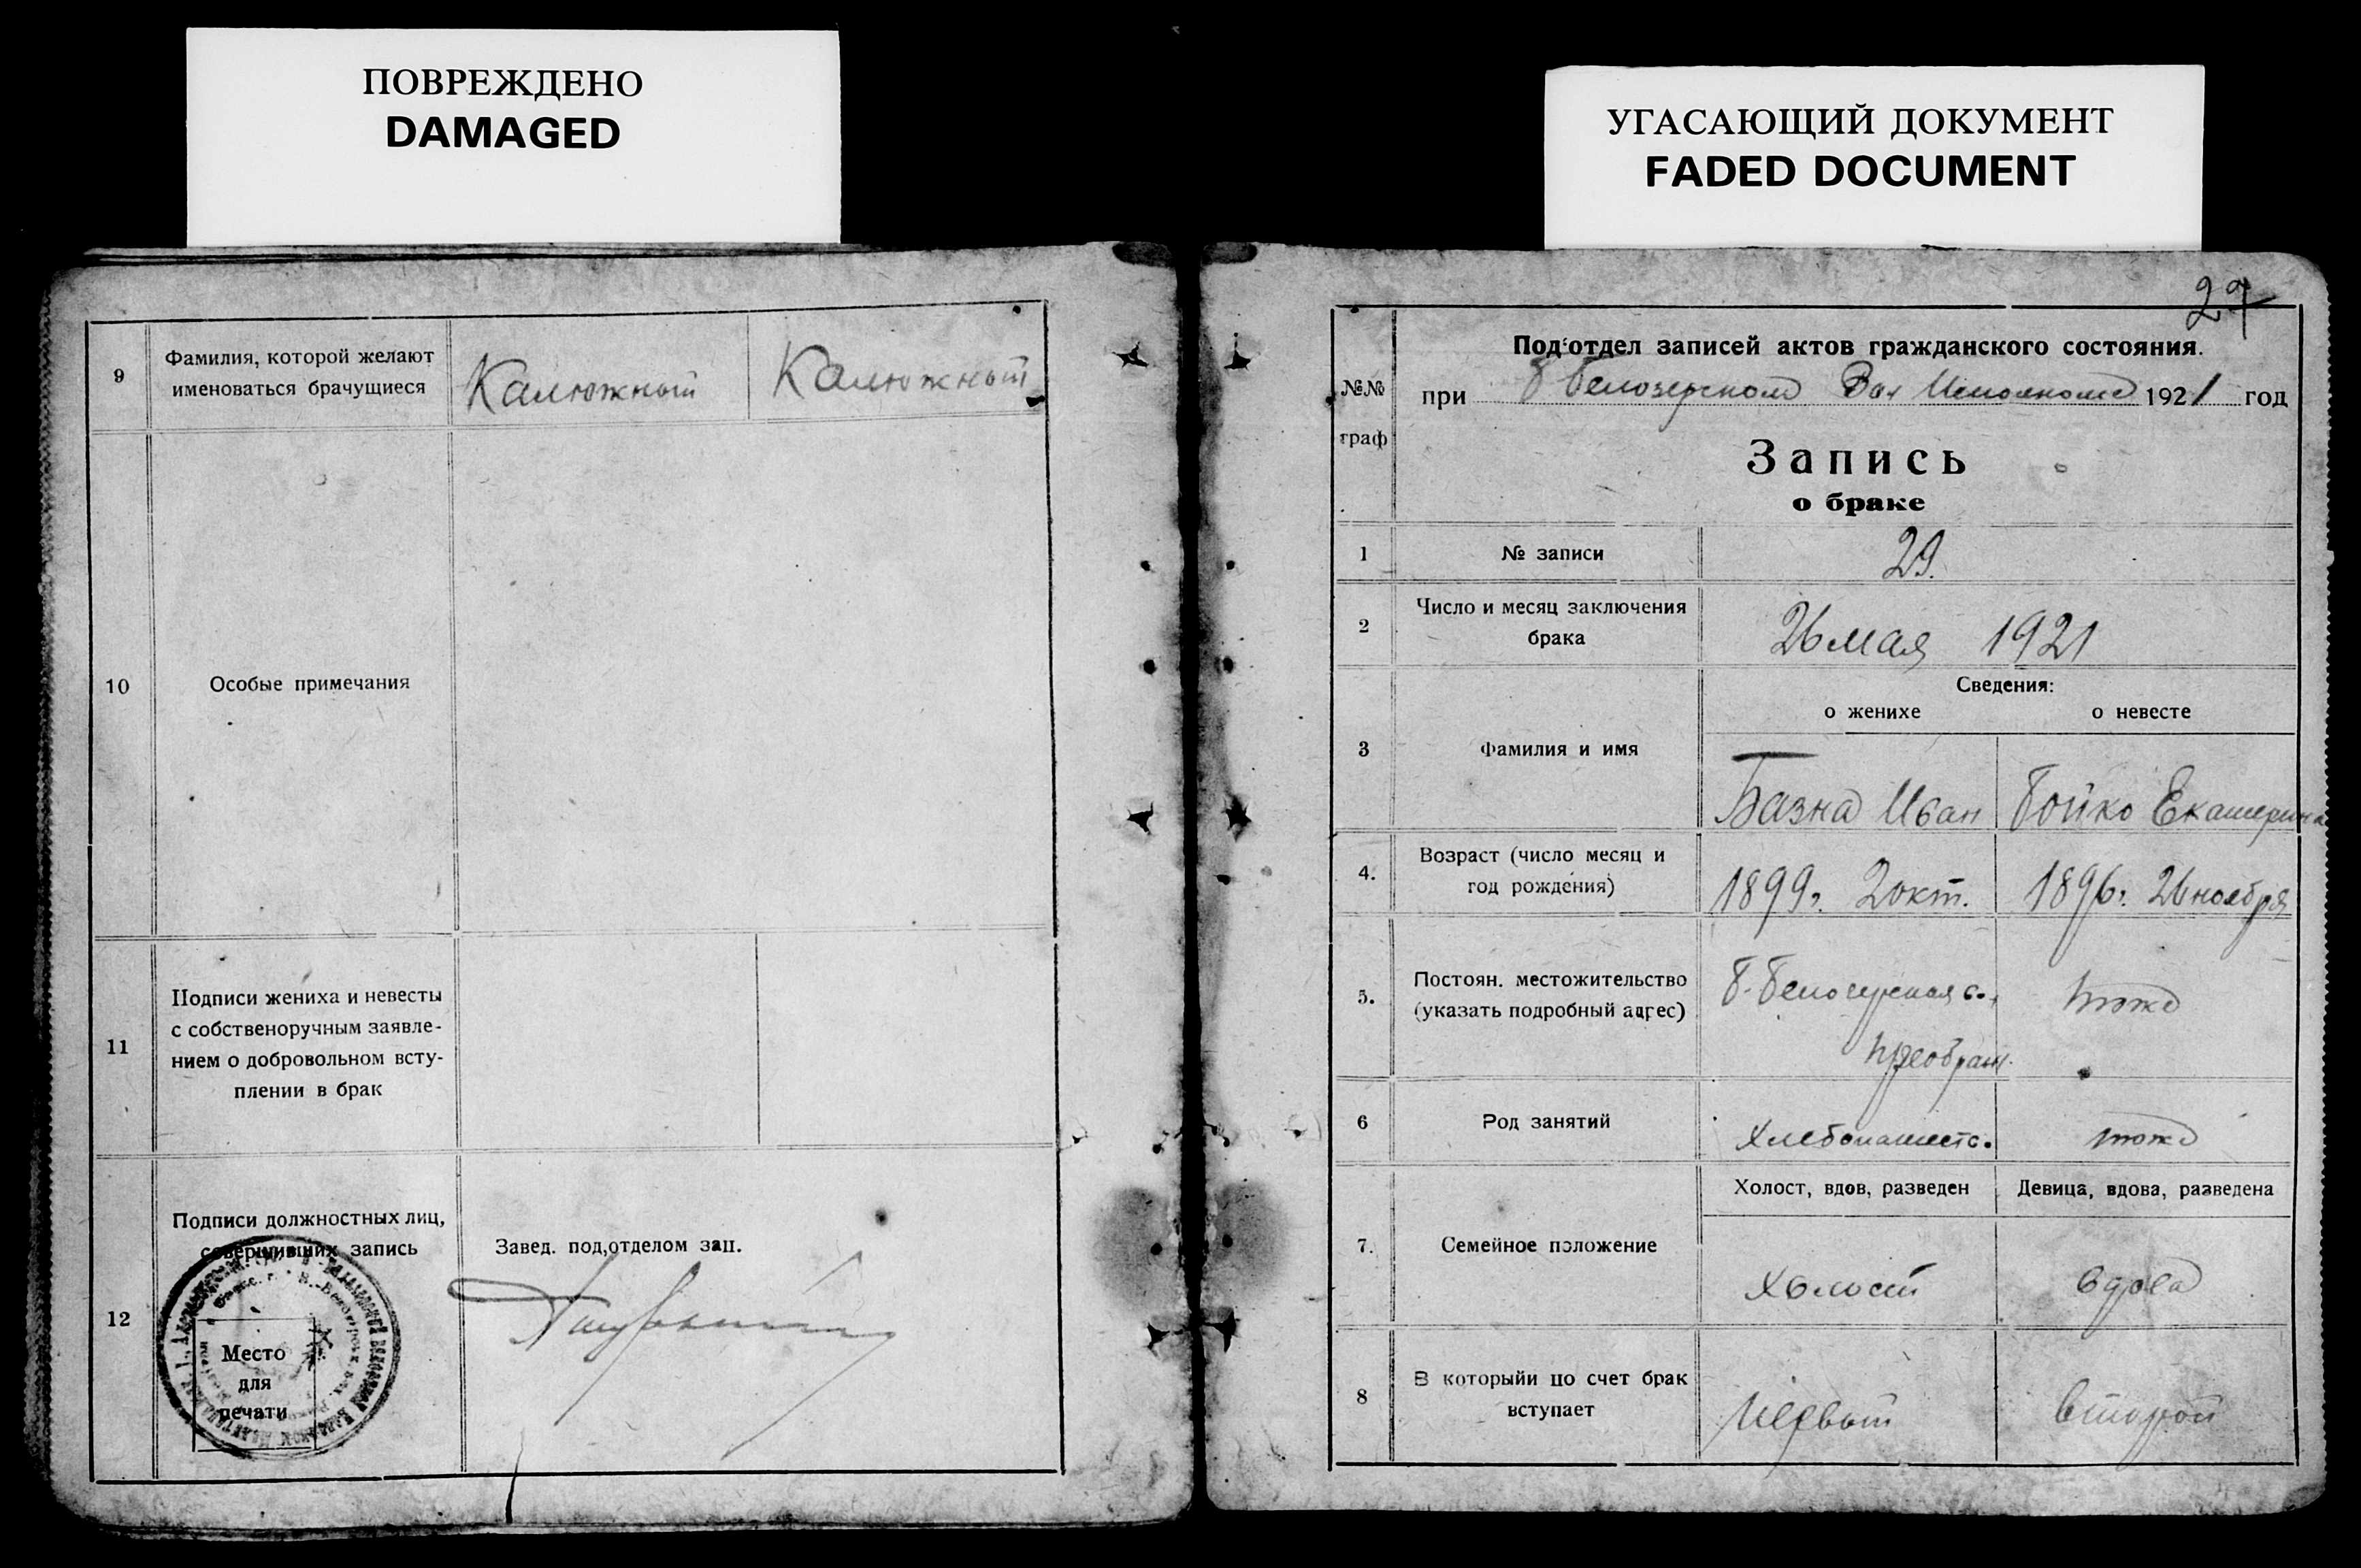 ПОВРЕЖДЕНО
DAMAGED
УГАСАЮЩИЙ ДОКУМЕНТ
FADED DOCUMENT
9
Фамилия, которой желают
именоваться брачущиеся
Калюжный
Калюжный
10
Особые примечания
11
Подписи жениха и невесты
с собственоручным заявле-
нием о добровольном всту-
плении в брак
12
Подписи должностных лиц,
совершивших запись
Место
для
печати
Завед. под,отделом зап.
27
№№
граф
Под'отдел записей актов гражданского состояния.
при Б Белозерском Вол Исполкоме 1921 год
Запись
о браке
1
№ записи
29.
2
Число и месяц заключения
брака
26 мая 1921
3
Фамилия и имя
Сведения:
о женихе
о невесте
Базна Иван
Бойко Екатерина
4.
Возраст (число месяц и
год рождения)
1899г. 2 окт.
1896г. 26 ноября
5.
Постоян. местожительство
(указать подробный адрес)
Б-Белозерская с.,
Преображ.
тоже
6
Род занятий
Хлебопашест.
тоже
7.
Семейное положение
Холост, вдов, разведен
Девица, вдова, разведена
холост
вдова
8
В которыйи по счет брак
вступает
Первый
второй